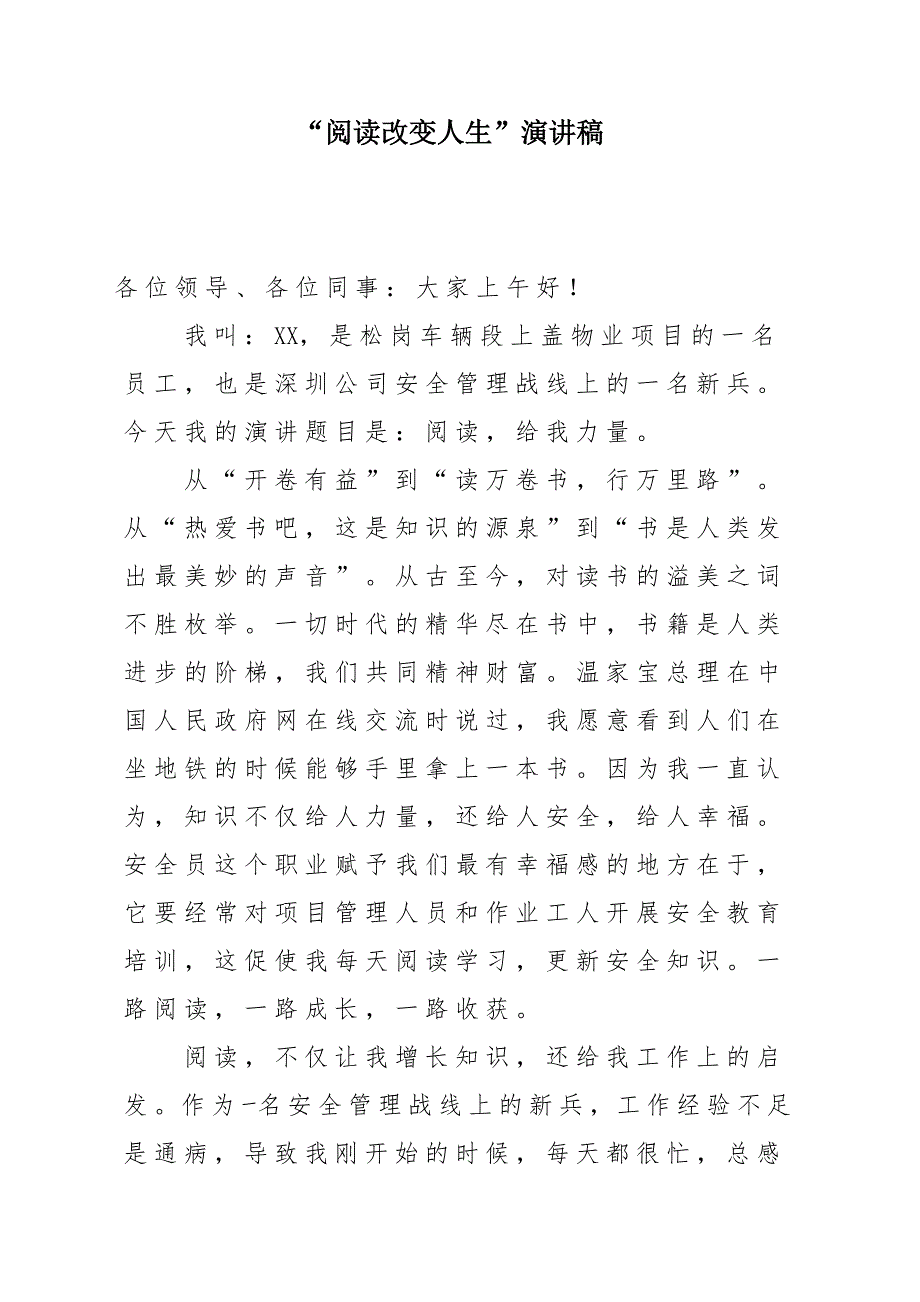 “阅读改变人生”演讲稿
各位领导、各位同事：大家上午好！
我叫：XX，是松岗车辆段上盖物业项目的一名
员工，也是深圳公司安全管理战线上的一名新兵。
今天我的演讲题目是：阅读，给我力量。
从“开卷有益”到“读万卷书，行万里路”。
从“热爱书吧，这是知识的源泉”到“书是人类发
出最美妙的声音”。从古至今，对读书的溢美之词
不胜枚举。一切时代的精华尽在书中，书籍是人类
进步的阶梯，我们共同精神财富。温家宝总理在中
国人民政府网在线交流时说过，我愿意看到人们在
坐地铁的时候能够手里拿上一本书。因为我一直认
为，知识不仅给人力量，还给人安全，给人幸福。
安全员这个职业赋予我们最有幸福感的地方在于，
它要经常对项目管理人员和作业工人开展安全教育
培训，这促使我每天阅读学习，更新安全知识。一
路阅读，一路成长，一路收获。
阅读，不仅让我增长知识，还给我工作上的启
发。作为一名安全管理战线上的新兵，工作经验不足
是通病，导致我刚开始的时候，每天都很忙，总感